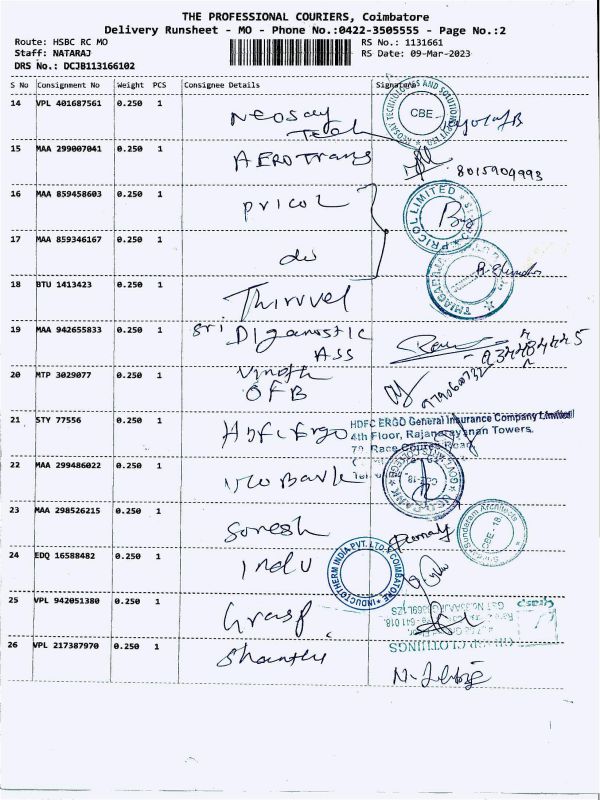 THE PROFESSIONAL COURIERS, Coimbatore
Delivery Runsheet - MO - Phone No.:0422-3505555 - Page No.:2
Route: HSBC RC MO
RS No.: 1131661
Staff: NATARAJ
RS Date: 09-Mar-2023
DRS No.: DCJB113166102
S No Consignment No Weight PCS Consignee Details Signature
14 VPL 401687561 0.250 1 Neosay Tech
CBE
15 MAA 299007041 0.250 1 AEROTrans
8015904993
16 MAA 859458603 0.250 1 pricol
PRICOL LIMITED
17 MAA 859346167 0.250 1 do
18 BTU 1413423 0.250 1 Thiruvel
19 MAA 942655833 0.250 1 Sri Diganostic
ASS
20 MTP 3029077 0.250 1 Vinoth
OFB
21 STY 77556 0.250 1 Hdfc Ergo
HDFC ERGO General Insurance Company Limited
4th Floor, Rajanarayanan Towers,
Race Course Road
22 MAA 299486022 0.250 1 uco Bank
23 MAA 298526215 0.250 1 Soresh
Sundaram Architects
CBE - 18
24 EDQ 16588482 0.250 1 indu
INDUCTOTHERM INDIA PVT. LTD. COIMBATORE
25 VPL 942051380 0.250 1 Grasp
26 VPL 217387970 0.250 1 Shanthi
CLOTHINGS